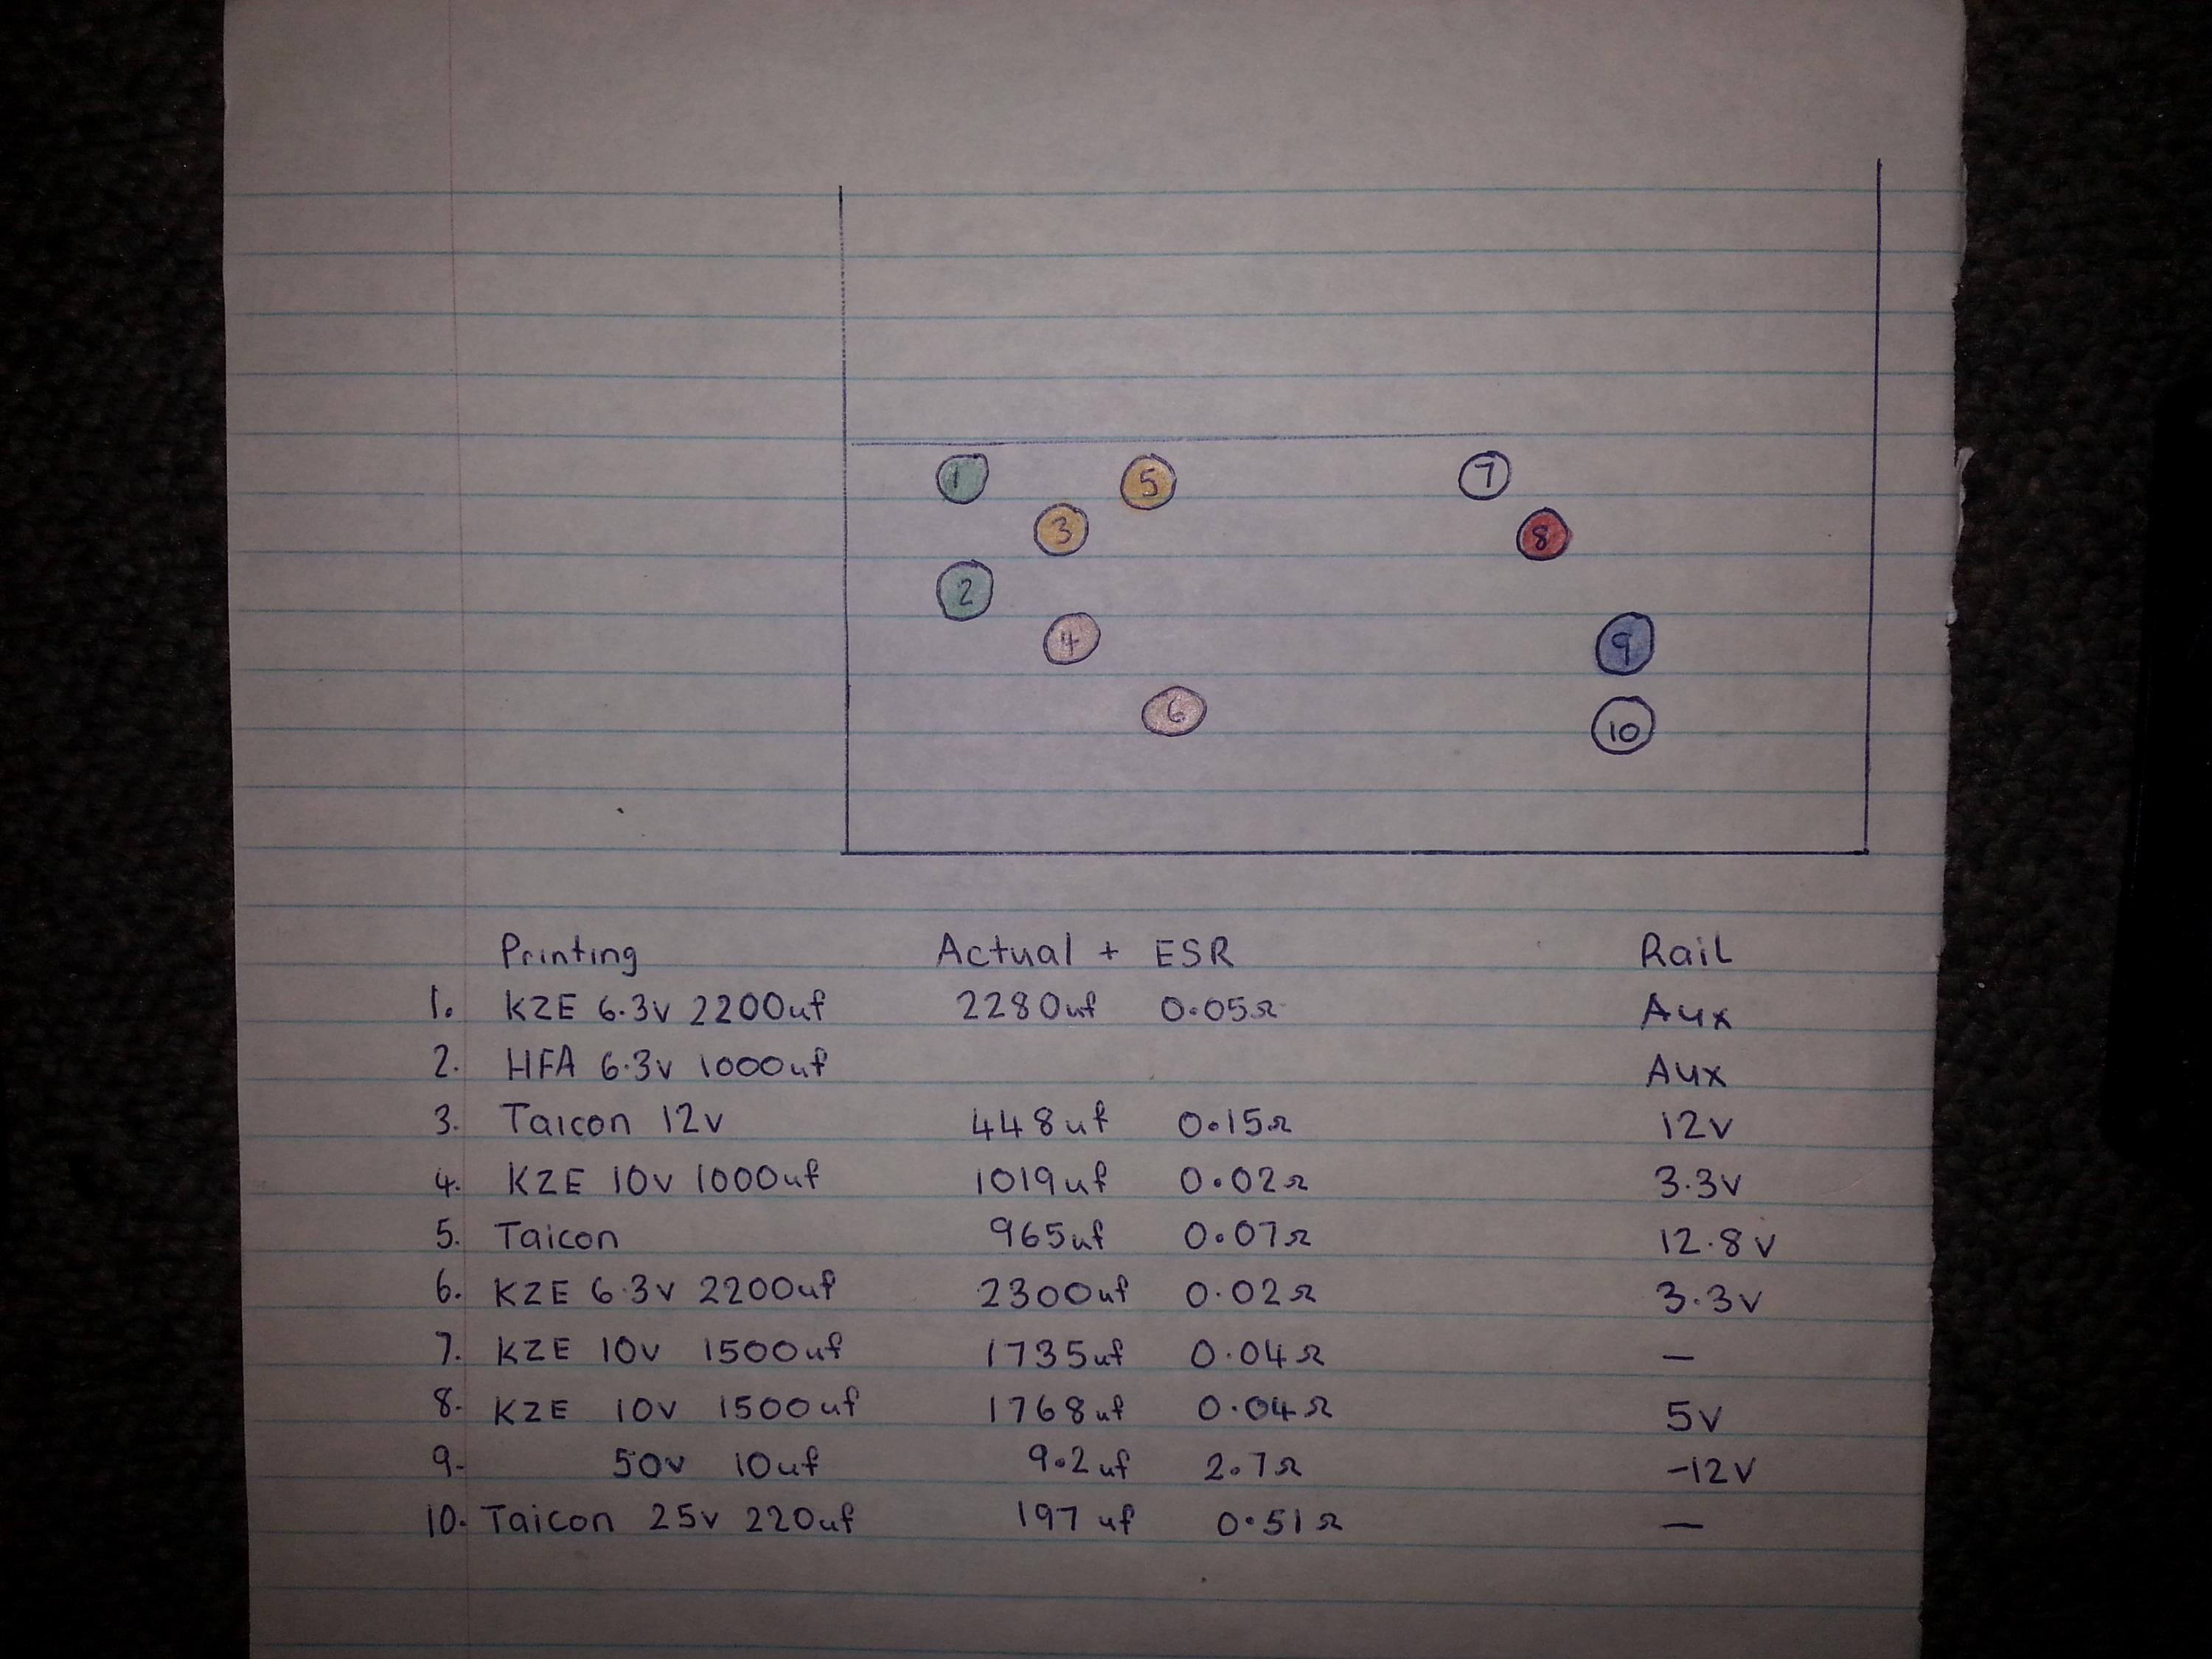 1
5
7
3
8
2
4
9
6
10
Printing Actual + ESR Rail
1. KZE 6.3v 2200uf 2280uf 0.05Ω Aux
2. HFA 6.3v 1000uf Aux
3. Taicon 12v 448uf 0.15Ω 12v
4. KZE 10v 1000uf 1019uf 0.02Ω 3.3v
5. Taicon 965uf 0.07Ω 12.8v
6. KZE 6.3v 2200uf 2300uf 0.02Ω 3.3v
7. KZE 10v 1500uf 1735uf 0.04Ω —
8. KZE 10v 1500uf 1768uf 0.04Ω 5v
9. 50v 10uf 9.2uf 2.7Ω -12v
10. Taicon 25v 220uf 197uf 0.51Ω —